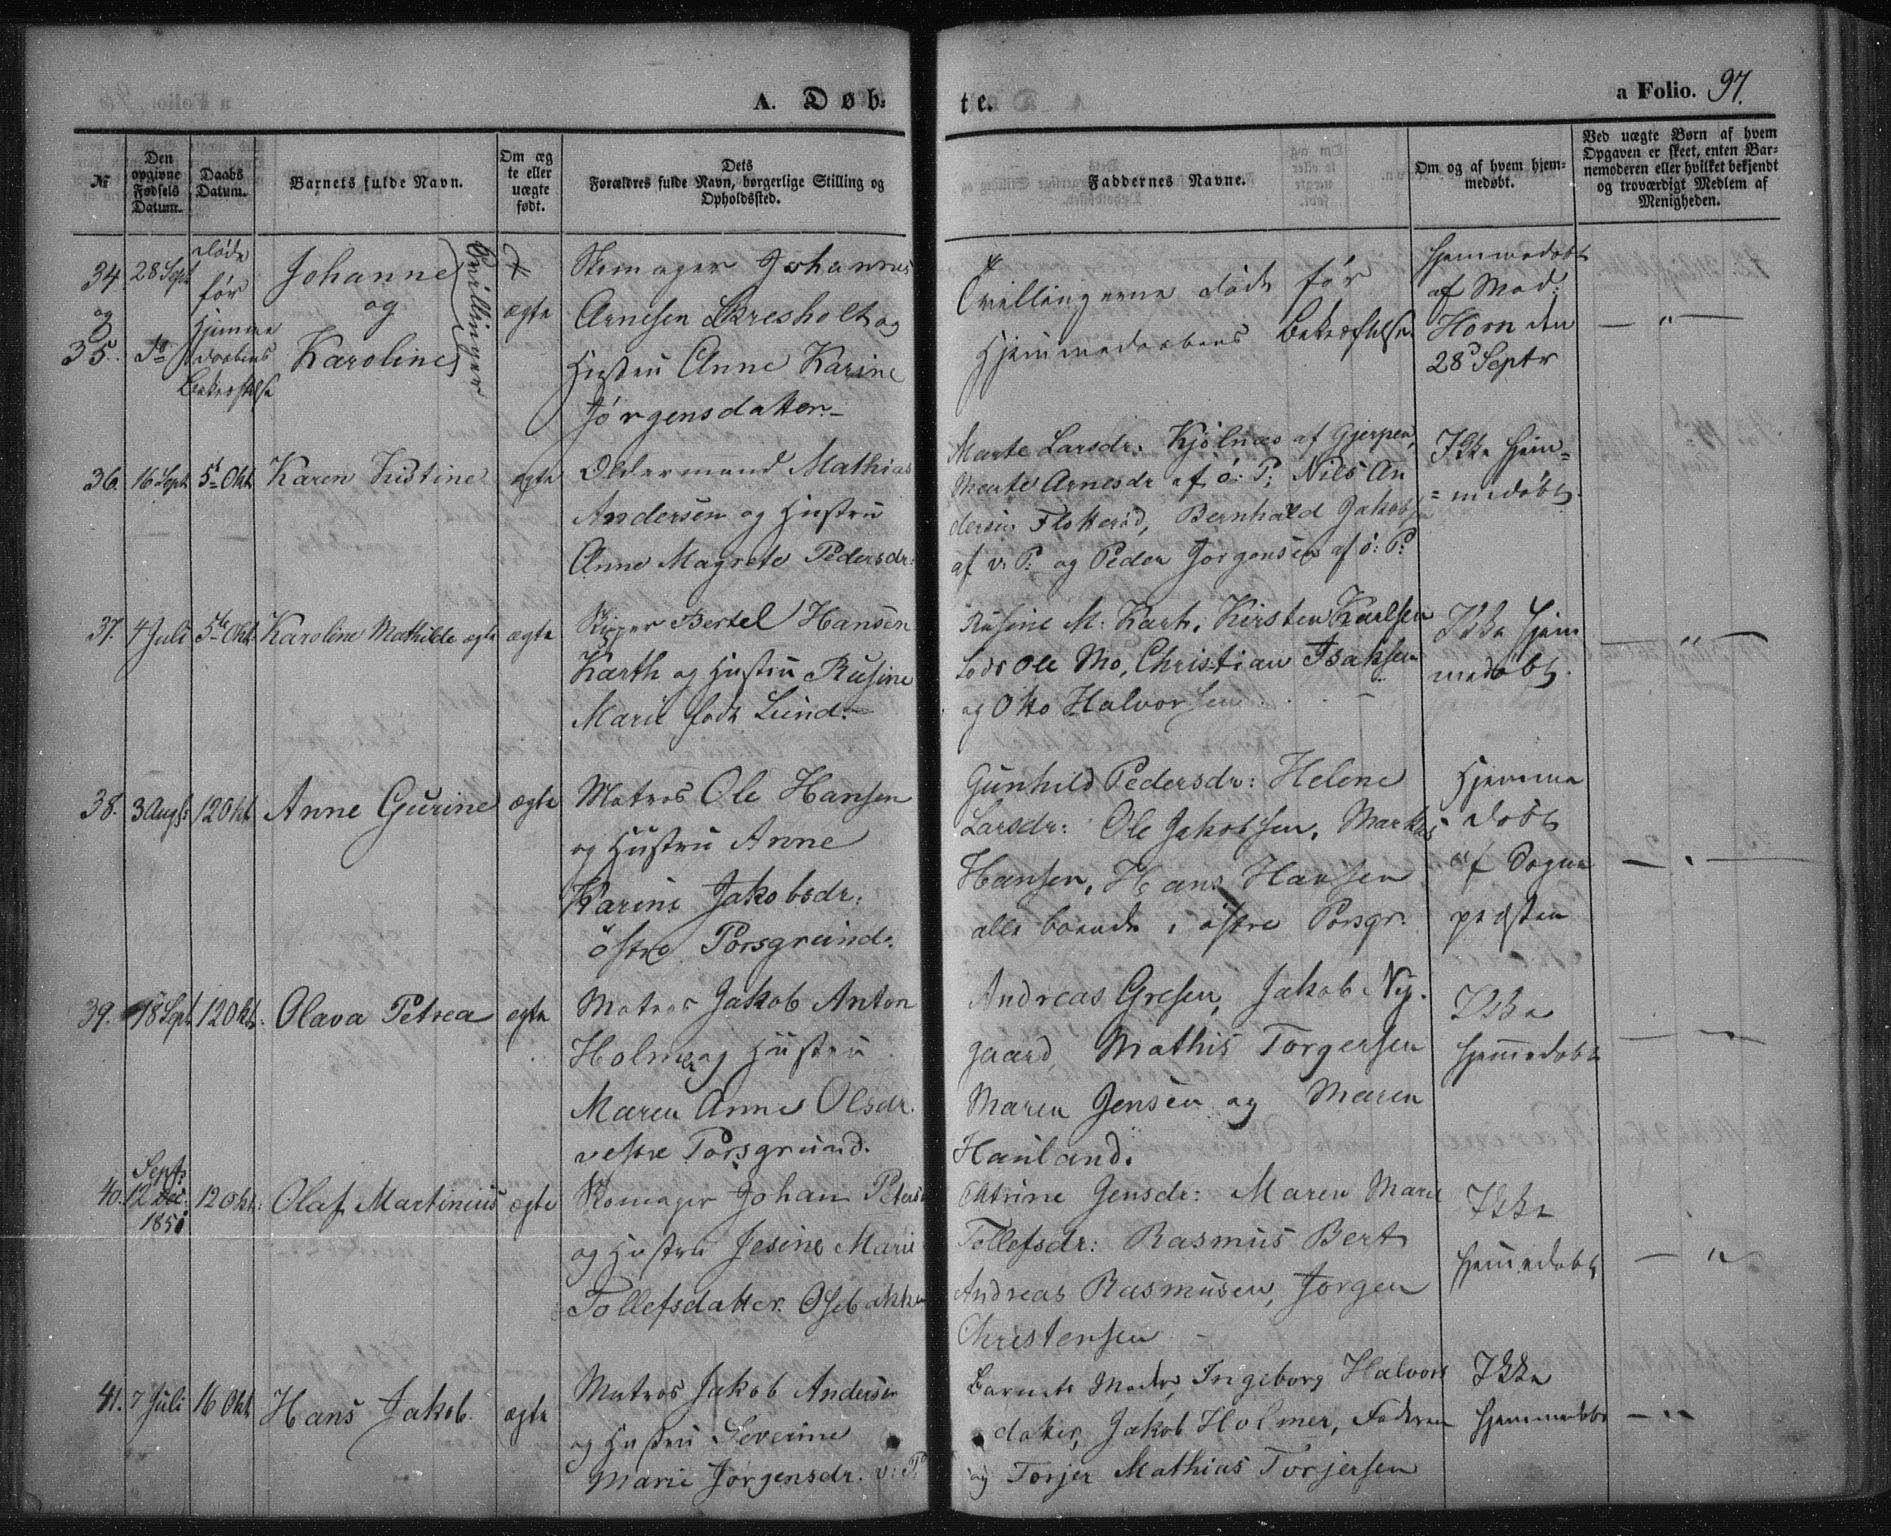 A. Døb-
te.
a Folio. 97.
№
Den opgivne Fødsels Datum.
Daabs Datum.
Barnets fulde Navn.
Om æg te eller uægte født.
Dets Forældres fulde Navn, borgerlige Stilling og Opholdssted.
Faddernes Navne.
Om og af hvem hjem- medøbt.
Ved uægte Børn af hvem Opgaven er skeet, enten Bar- nemoderen eller hvilket bekjendt og troværdigt Medlem af Menigheden.
34.
og
35.
28 Sept
do
døde
før
Hjemme
daabens
Bekræftelse
Johanne
og
Karoline
Tvillinger
ægte
Skomager Johannes
Arnesen og
Hustru Anne Karine
Jørgensdatter
Tvillingerne døde før
Hjemmedaabens Bekræftelse
Hjemmedøbt
af Mad:
Horn den
28 Septr
— " —
36.
16 Sept
5 Okt
Karen Kristine
ægte
Oldermand Mathias
Andersen og Hustru
Anne Magrete Pedersdr:
Marte Larsdr. Kjölnæs af Gjerpen,
Marte Arnesdr af ö: P: Nils An
dersen Flotterød, Bernhald Jakobs
af v. P. og Peder Jorgensen af ö: P:
Ikke Hjem=
=medöbt.
37.
4 Juli
5te Okt
Karoline Mathilde
ægte
Skipper Bertel Hansen
Karth og Hustru Rusine
Marie født Lund.
Rusine M. Kart, Kirsten Karlsen
Lods Ole Mo, Christian Isaksen
og Otto Halvorsen
Ikke Hjem
medöbt.
— " —
38.
3 Augs:
12 Okt
Anne Gurine
ægte
Matros Ole Hansen
og Hustru Anne
Karine Jakobsdr:
östre Porsgrund.
Gunhild Pedersdr: Helene
Larsdr: Ole Jakobsen, Markus
Hansen, Hans Hansen
alle boende i östre Porsgr.
Hjemme
döbt
af Sogne
præsten
39.
18 Sept
12 Okt.
Olava Petrea
ægte
Matros Jakob Anton
Holmer og Hustru
Maren Anne Olsdr.
vestre Porsgrund.
Andreas Gresen, Jakob Ny-
gaard, Mathis Torgersen
Maren Jensen og Maren
Hauland.
Ikke
hjemmedøbt
40.
Sept:
12
1851
12 Okt.
Olaf Martinius
ægte
Skomager Johan Petersen
og Hustru Jesine Marie
Tollefsdatter. Osebakken
Chtrine Jensdr: Maren Marie
Tollefsdr: Rasmus Bert
Andreas Rasmusen, Jorgen
Christensen
Ikke
hjemmedøbt
— " —
41.
7 Juli
16 Okt
Hans Jakob.
ægte
Matros Jakob Andersen
og Hustru Severine
Marie Jørgensdr. v: P.
Barnets Moder, Ingeborg Halvors
datter, Jakob Holmer, Faderen
og Torjer Mathias Torjersen
Ikke
hjemmedøbt
— " —